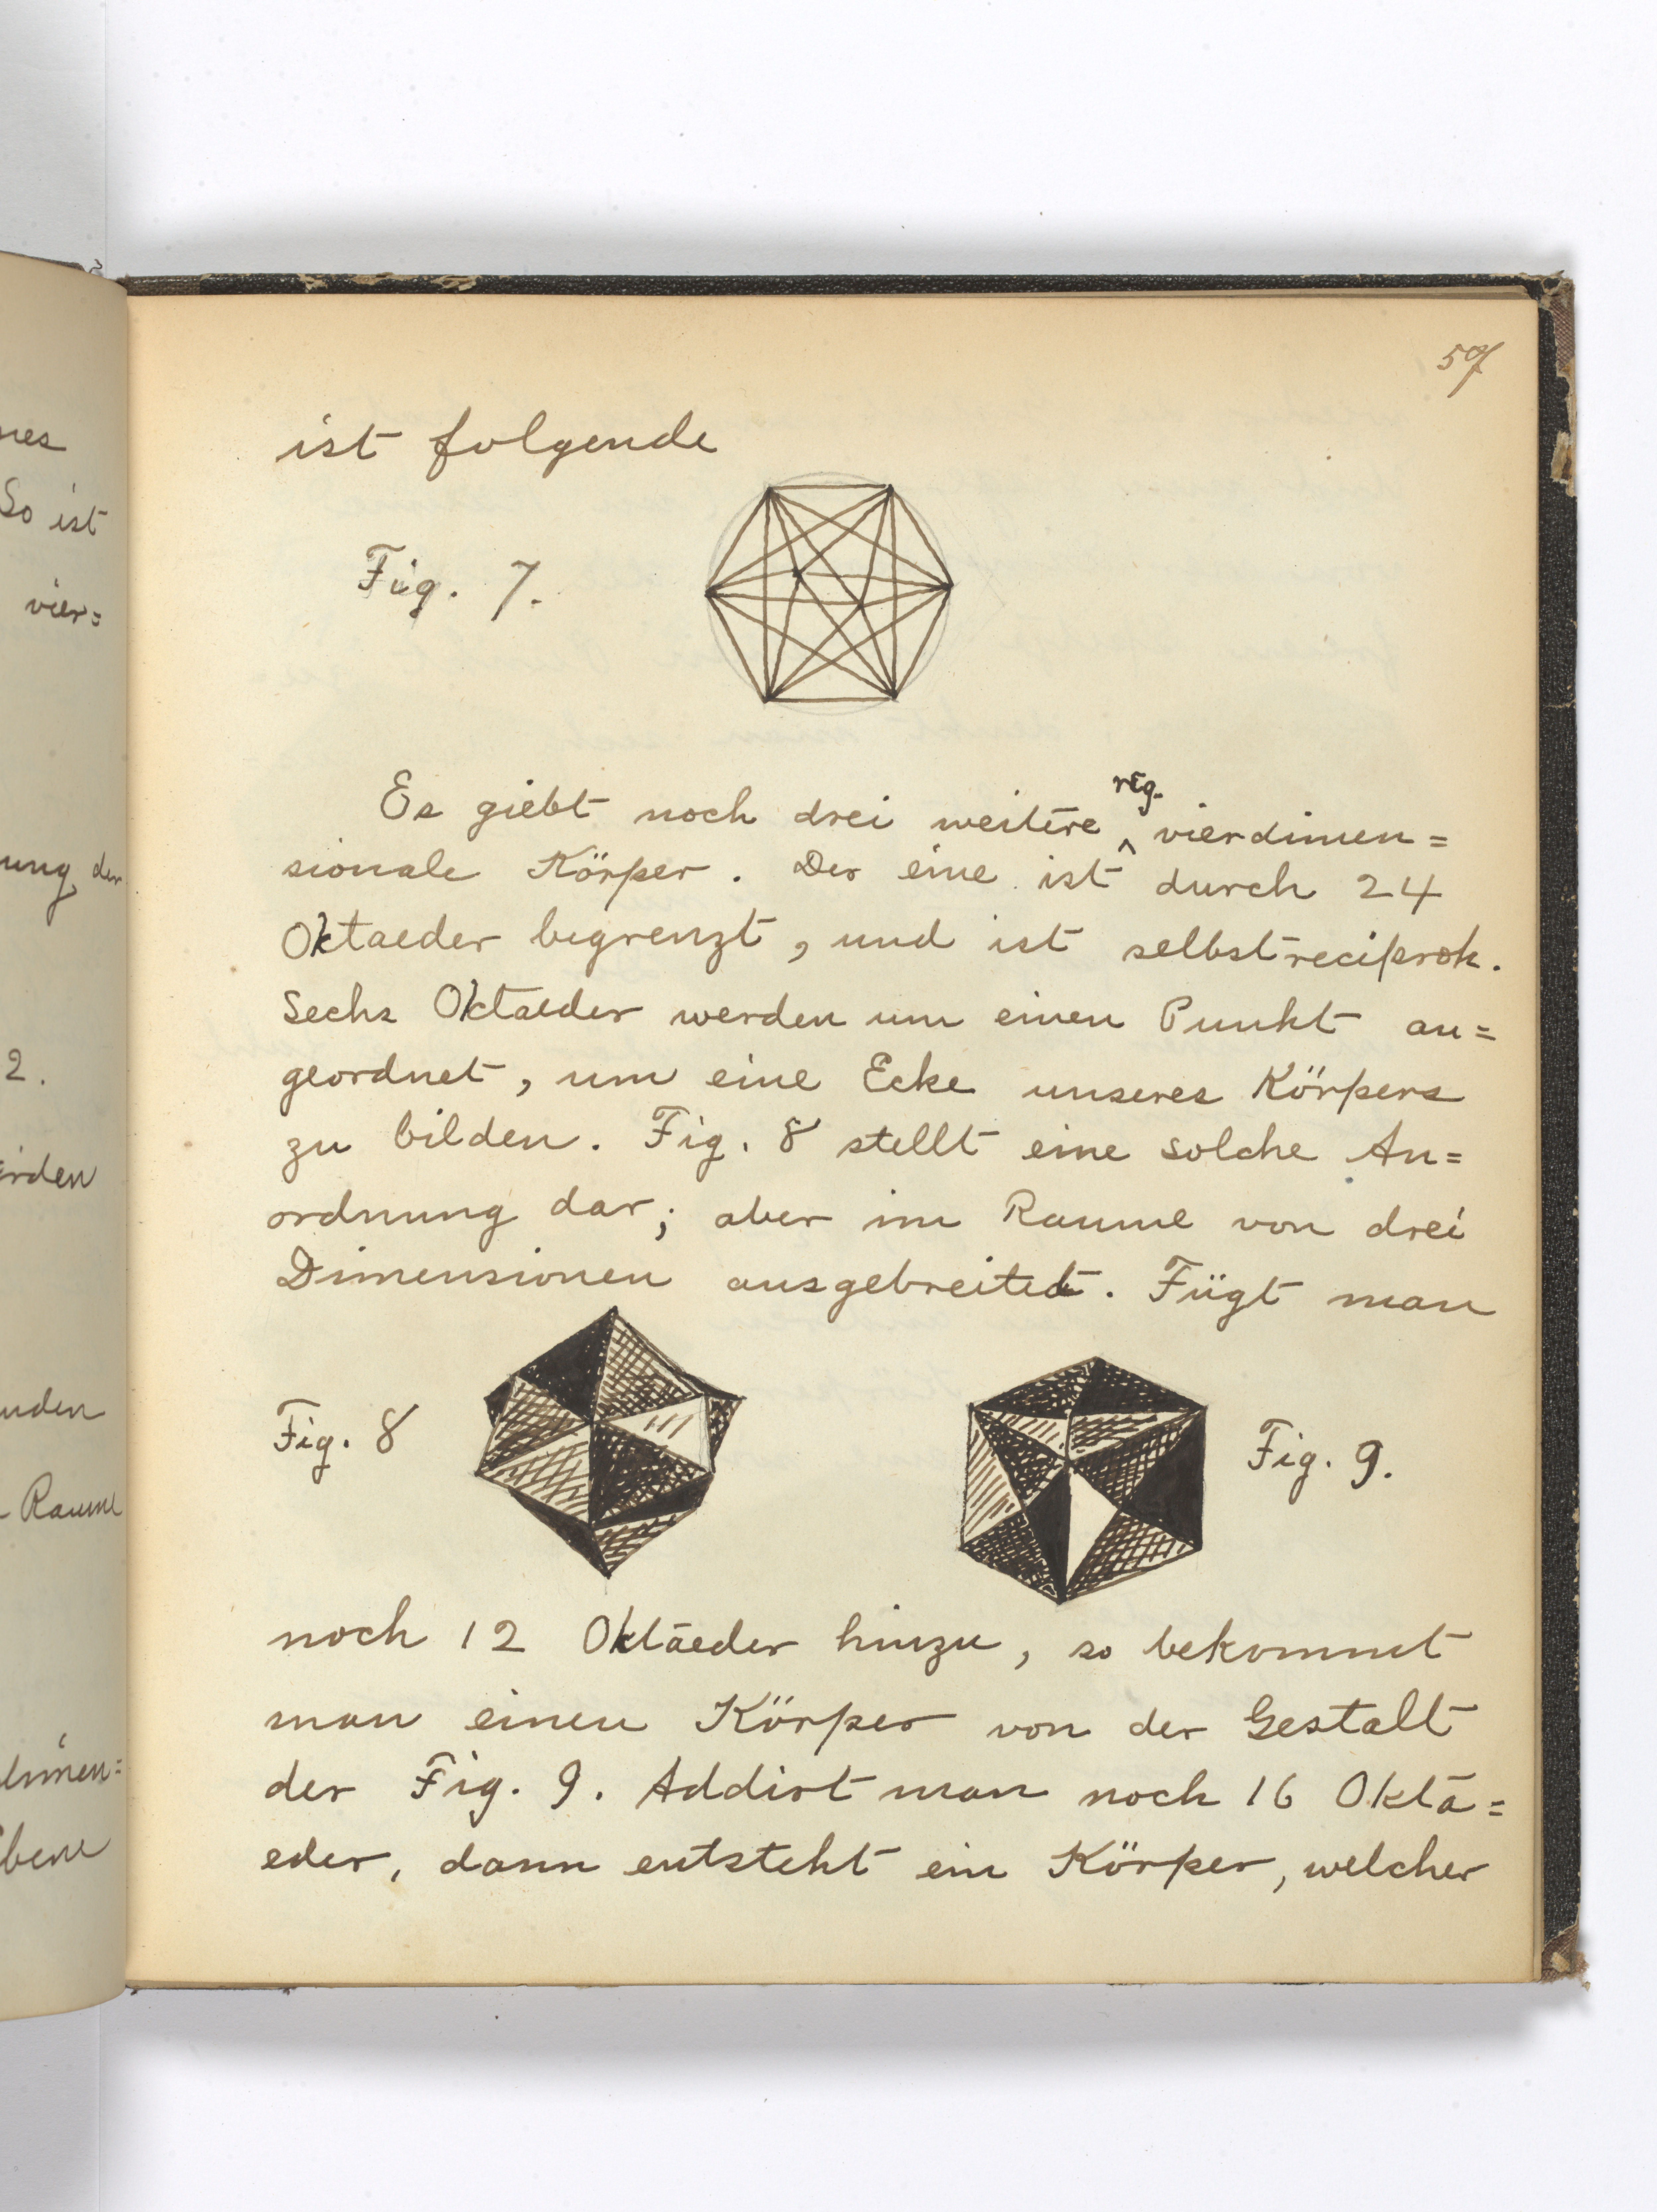 nes
So ist
vier=
ung der
2.
rden
nden
Raume
imen=
bene
57
ist folgende
Fig. 7.
Es giebt noch drei weitere reg. vierdimen=
sionale Körper. Der eine ist durch 24
Oktaeder begrenzt, und ist selbstreciprok.
Sechs Oktaeder werden um einen Punkt an=
geordnet, um eine Ecke unseres Körpers
zu bilden. Fig. 8 stellt eine solche An=
ordnung dar; aber im Raume von drei
Dimensionen ausgebreitet. Fügt man
Fig. 8
Fig. 9.
noch 12 Oktäeder hinzu, so bekommt
man einen Körper von der Gestalt
der Fig. 9. Addirt man noch 16 Oktä=
eder, dann entsteht ein Körper, welcher